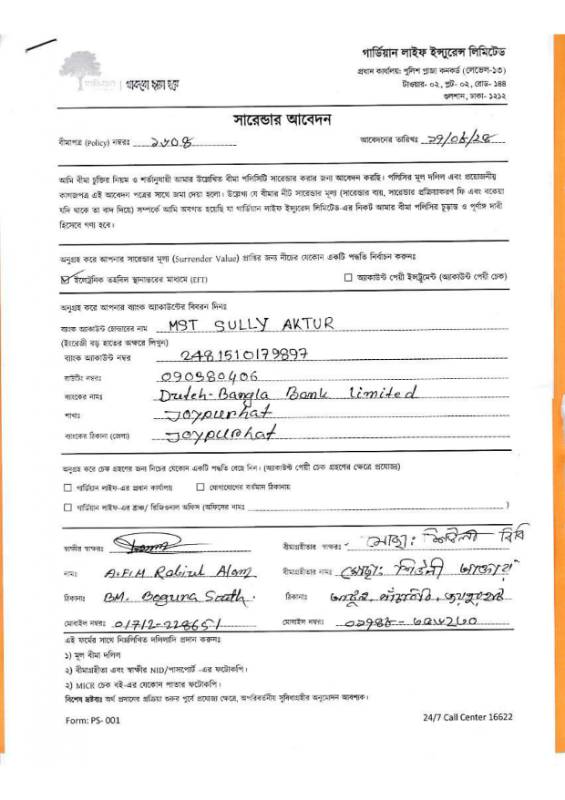 গার্ডিয়ান লাইফ ইন্স্যুরেন্স লিমিটেড
প্রধান কার্যালয়: পুলিশ প্লাজা কনকর্ড (লেভেল-১৩)
টাওয়ার- ০২, প্লট- ০২, রোড- ১৪৪
গুলশান, ঢাকা- ১২১২
সারেন্ডার আবেদন
বীমাপত্র (Policy) নম্বরঃ ১৬০৪ আবেদনের তারিখঃ
আমি বীমা চুক্তির নিয়ম ও শর্তানুযায়ী আমার উল্লেখিত বীমা পলিসিটি সারেন্ডার করার জন্য আবেদন করছি। পলিসির মূল দলিল এবং প্রয়োজনীয়
কাগজপত্র এই আবেদন পত্রের সাথে জমা দেয়া হলো। উল্লেখ্য যে বীমার নীট সারেন্ডার মূল্য (সারেন্ডার ব্যয়, সারেন্ডার প্রক্রিয়াকরণ ফি এবং বকেয়া
যদি থাকে তা বাদ দিয়ে) সম্পর্কে আমি অবগত হয়েছি যা গার্ডিয়ান লাইফ ইন্স্যুরেন্স লিমিটেড-এর নিকট আমার বীমা পলিসির চূড়ান্ত ও পূর্ণাঙ্গ দাবী
হিসেবে গণ্য হবে।
অনুগ্রহ করে আপনার সারেন্ডার মূল্য (Surrender Value) প্রাপ্তির জন্য নীচের যেকোন একটি পদ্ধতি নির্বাচন করুনঃ
ইলেট্রনিক তহবিল স্থানান্তরের মাধ্যমে (EFT) অ্যাকাউন্ট পেয়ী ইন্সট্রুমেন্ট (অ্যাকাউন্ট পেয়ী চেক)
অনুগ্রহ করে আপনার ব্যাংক অ্যাকাউন্টের বিবরন দিনঃ
ব্যাংক অ্যাকাউন্ট হোল্ডারের নাম MST SULLY AKTUR
(ইংরেজী বড় হাতের অক্ষরে লিখুন)
ব্যাংক অ্যাকাউন্ট নম্বর 2481510179897
রাউটিং নম্বরঃ 090380406
ব্যাংকের নামঃ Dutch-Bangla Bank Limited
শাখাঃ Joypurhat
ব্যাংকের ঠিকানা (জেলা) Joypurhat
অনুগ্রহ করে চেক গ্রহণের জন্য নিচের যেকোন একটি পদ্ধতি বেছে নিন। (অ্যাকাউন্ট পেয়ী চেক গ্রহণের ক্ষেত্রে প্রযোজ্য)
গার্ডিয়ান লাইফ-এর প্রধান কার্যালয় যোগাযোগের বর্তমান ঠিকানায়
গার্ডিয়ান লাইফ-এর ব্রাঞ্চ/ রিজিওনাল অফিস (অফিসের নামঃ )
স্বাক্ষীর স্বাক্ষরঃ বীমাগ্রহীতার স্বাক্ষরঃ মোছা: শিউলী বিবি
নামঃ A.F.M Rabiul Alom বীমাগ্রহীতার নামঃ মোছা: শিউলী আক্তার
ঠিকানাঃ BM. Bogura South. ঠিকানাঃ
মোবাইল নম্বরঃ 01712-228651 মোবাইল নম্বরঃ
এই ফর্মের সাথে নিম্নলিখিত দলিলাদি প্রদান করুনঃ
১) মূল বীমা দলিল
২) বীমাগ্রহীতা এবং স্বাক্ষীর NID/পাসপোর্ট -এর ফটোকপি।
২) MICR চেক বই-এর যেকোন পাতার ফটোকপি।
বিশেষ দ্রষ্টব্যঃ অর্থ প্রদানের প্রক্রিয়া শুরুর পূর্বে প্রযোজ্য ক্ষেত্রে, অপরিবর্তনীয় সুবিধাগ্রহীর অনুমোদন আবশ্যক।
Form: PS- 001 24/7 Call Center 16622